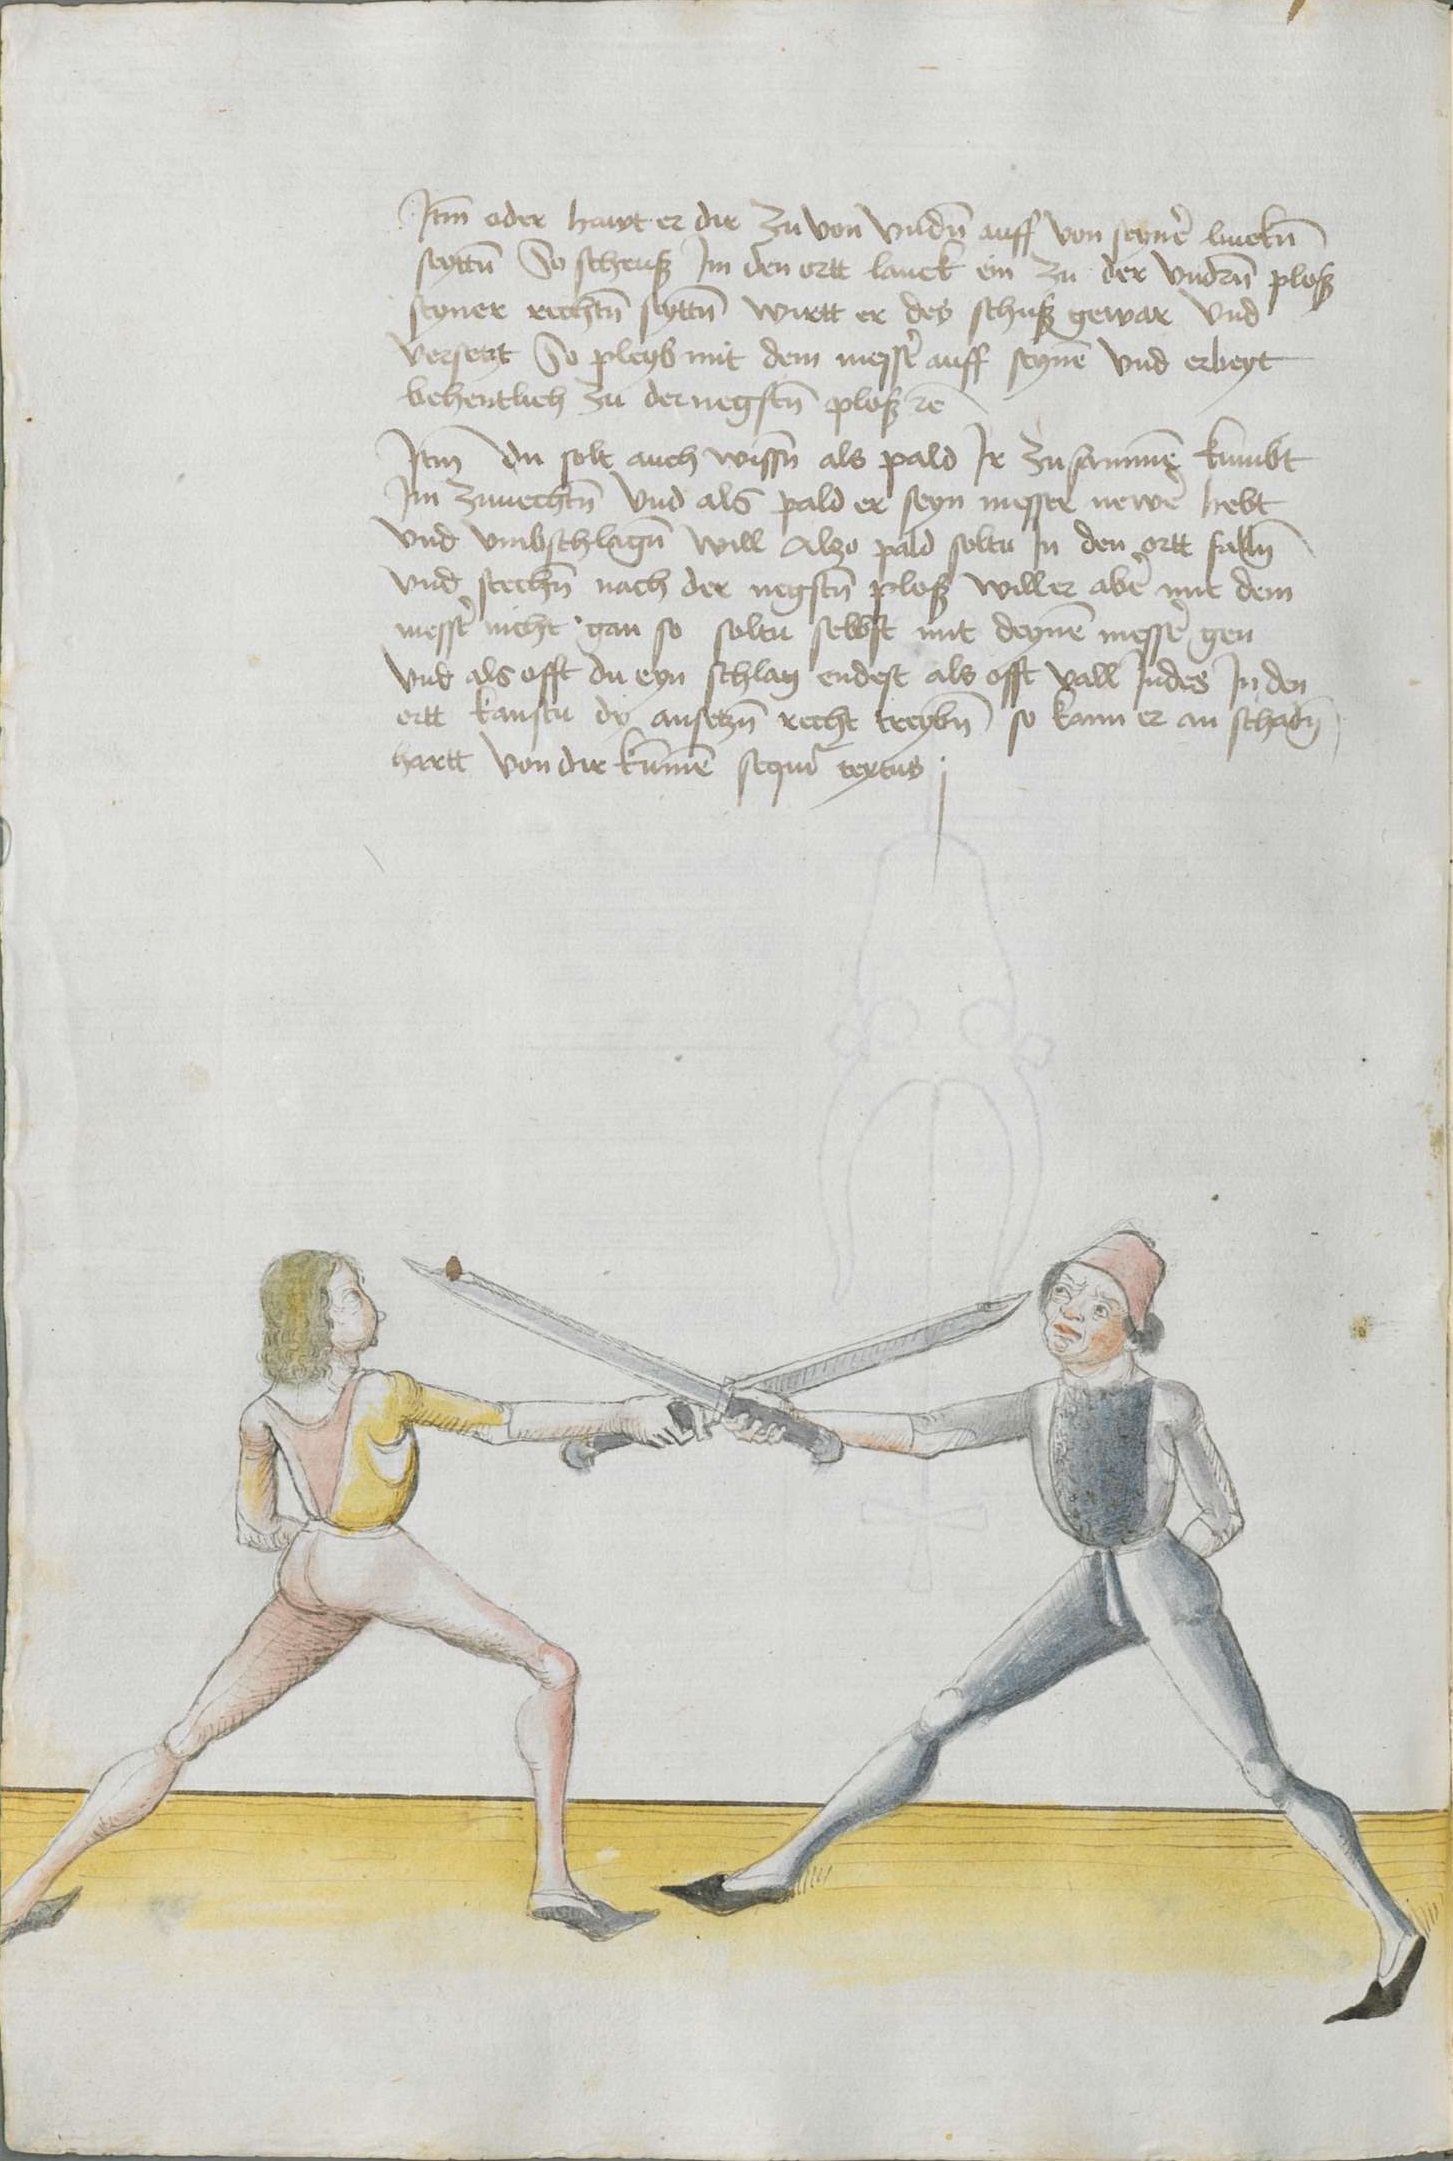 Itm̄ oder hawt er dir zu von vndn̄ auff von seyne͛ linckn̄
seyttn̄ So scheuß Im den ortt lanck ein zu der vndrn̄ ploß
seyner rechtn̄ seyttn̄ wirtt er des schuß gewar vnd
versetzt So pleyb mit dem messe͛ auff seynē vnd erbeyt
behentlich zu der negstn̄ ploß rē
Itm̄ du solt auch wissn̄ als pald Ir zusammē kumbt
Im zuuechtn̄ vnd als pald er seyn messer newe͛ hebt
vnd vmbschlagn̄ will Alzo pald soltu In den ortt falln̄
vnd stechn̄ nach der negstn̄ ploß will er abe͛ mit dem
messe͛ nicht gan so soltu selbst mit deynē messe͛ gen
vnd als offt du eyn schlag endest als offt vall Indes In den
ortt kanstu dy ansetzn̄ recht treybn̄ so kann er an schadn̄
hartt von dir kūmē sequi͛ textus